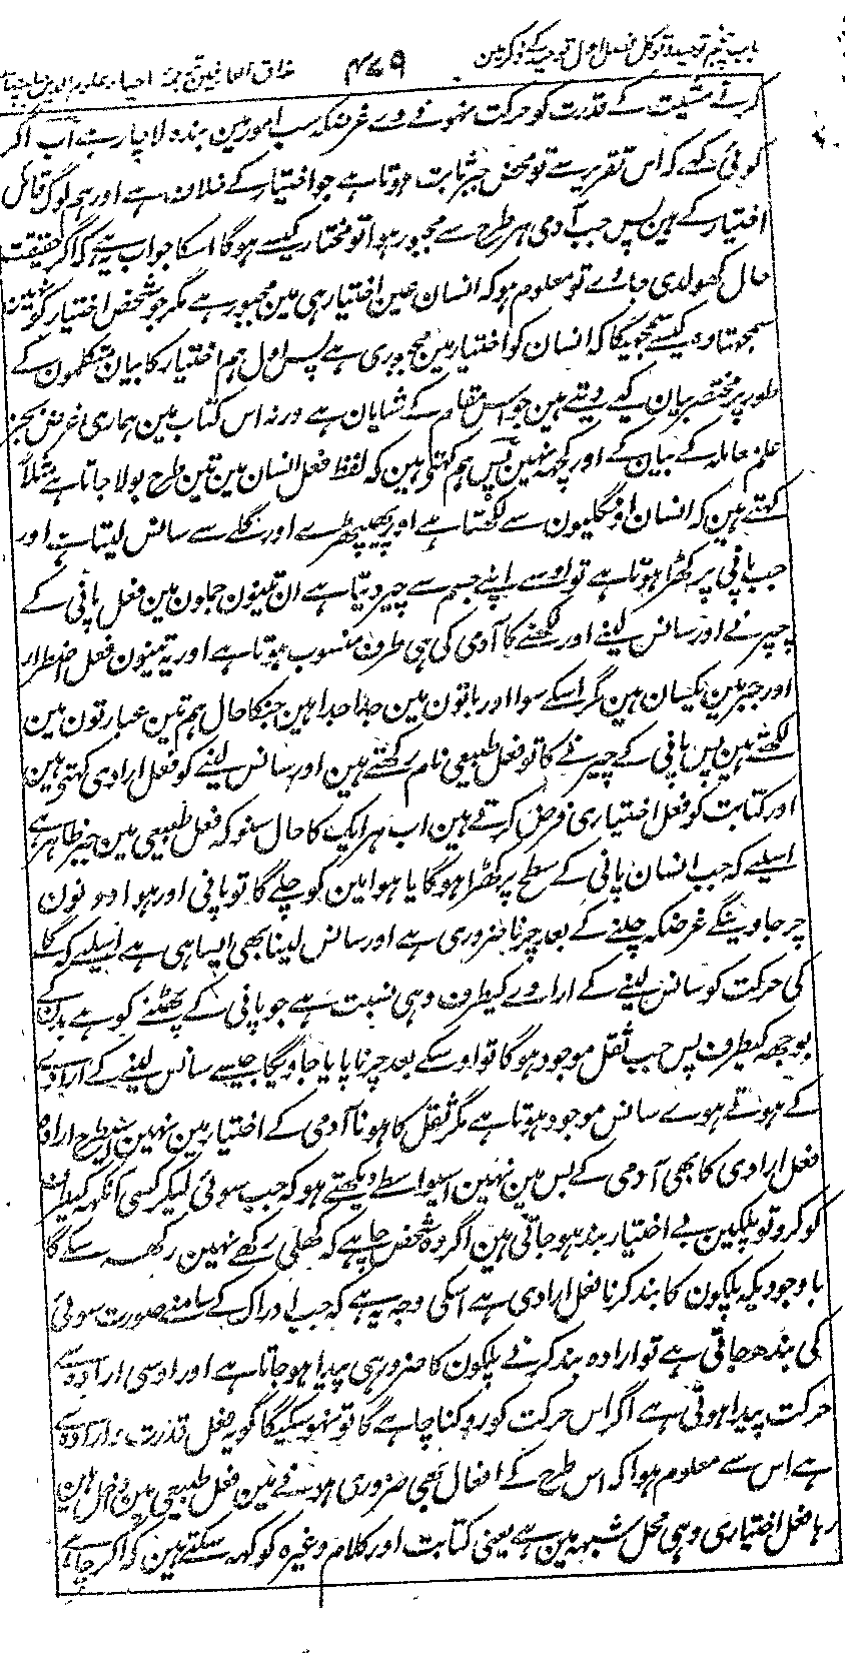 باب پنجم توحید و توکل فصل اول توحید کے ذکر مین ۴۷۹ مذاق العارفین ترجمہ احیاء علوم الدین جلد چہارم
کرنے مشیت کے قدرت کو حرکت نہونے دے غرضکہ سب امور مین بندہ لاچار ہے اب اگر
کوئی کہے کہ اس تقریر سے تو محض جبر ثابت ہوتا ہے جو اختیار کے خلاف ہے اور ہم لوگ قائل
اختیار کے ہین پس جب آدمی ہر طرح سے مجبور ہوا تو مختار کیسے ہوگا اسکا جواب یہ ہے کہ اگر حقیقت
حال کھولدی جاوے تو معلوم ہو کہ انسان عین اختیار ہی مین مجبور ہے مگر جو شخص اختیار کو نہین
سمجھتا وہ کیسے سمجھیگا کہ انسان کو اختیار مین مجبوری ہے پس اول ہم اختیار کا بیان متکلمون کے
طور پر مختصر بیان کیے دیتے ہین جو اس مقام کے شایان ہے ورنہ اس کتاب مین ہماری غرض بجز
علم معاملہ کے بیان کے اور کچھ نہین پس ہم کہتے ہین کہ لفظ فعل انسان مین تین طرح بولا جاتا ہے مثلاً
کہتے ہین کہ انسان اونگلیون سے لکھتا ہے اور پھیپھڑے اور گلے سے سانس لیتا ہے اور
جب پانی پر کھڑا ہوتا ہے تو اوسے اپنے جسم سے چیر دیتا ہے ان تینون جملون مین فعل پانی کے
چیرنے اور سانس لینے اور لکھنے کا آدمی کی ہی طرف منسوب ہوتا ہے اور یہ تینون فعل اضطرار
اور جبر مین یکسان ہین مگر اسکے سوا اور باتون مین جدا جدا ہین جنکا حال ہم تین عبارتون مین
لکھتے ہین پس پانی کے چیرنے کا تو فعل طبیعی نام رکھتے ہین اور سانس لینے کو فعل ارادی کہتے ہین
اور کتابت کو فعل اختیاری فرض کرتے ہین اب ہر ایک کا حال سنو کہ فعل طبیعی مین جبر ظاہر ہے
اسلیے کہ جب انسان پانی کے سطح پر کھڑا ہوگا یا ہوا مین کو چلے گا تو پانی اور ہوا دونون
چر جاوینگے غرضکہ چلنے کے بعد چرنا ضروری ہے اور سانس لینا بھی ایسا ہی ہے اسلیے کہ گلے
کی حرکت کو سانس لینے کے ارادے کیطرف وہی نسبت ہے جو پانی کے پھٹنے کو ہے بدن کے
بوجھ کیطرف پس جب ثقل موجود ہوگا تو اوسکے بعد چرنا پایا جاویگا جیسے سانس لینے کے ارادے
کے ہوتے ہوے سانس موجود ہوتا ہے مگر ثقل کا ہونا آدمی کے اختیار مین نہین اسیطرح ارادہ
فعل ارادی کا بھی آدمی کے بس مین نہین اسیواسطے دیکھتے ہو کہ جب سوئی لیکر کسی کی آنکھ کیطرف
کو کرو تو پلکین بے اختیار بند ہو جاتی ہین اگر وہ شخص چاہے کہ کھلی رکھے نہین رکھ سکے گا
باوجودیکہ پلکون کا بند کرنا فعل ارادی ہے اسکی وجہ یہ ہے کہ جب ادراک کے سامنے صورت سوئی
کی بندھ جاتی ہے تو ارادہ بند کرنے پلکون کا ضرور ہی پیدا ہو جاتا ہے اور اوسی ارادہ سے
حرکت پیدا ہوتی ہے اگر اس حرکت کو روکنا چاہے گا تو نہو سکیگا گو یہ فعل قدرت و ارادہ سے
ہے اس سے معلوم ہوا کہ اس طرح کے افعال بھی ضروری ہونے مین فعل طبیعی مین داخل ہین
رہا فعل اختیاری وہی محل شبہہ مین ہے یعنی کتابت اور کلام وغیرہ کو کہہ سکتے ہین کہ اگر چاہے